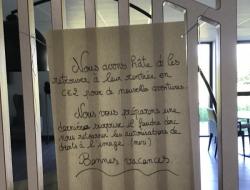 Nous avons hâte de les
retrouver à leur rentrée en
CE2 pour de nouvelles aventures.
Nous vous préparons une
dernière surprise il faudra donc
nous retourner les autorisations de
droits à l'image (mini)
Bonnes vacances